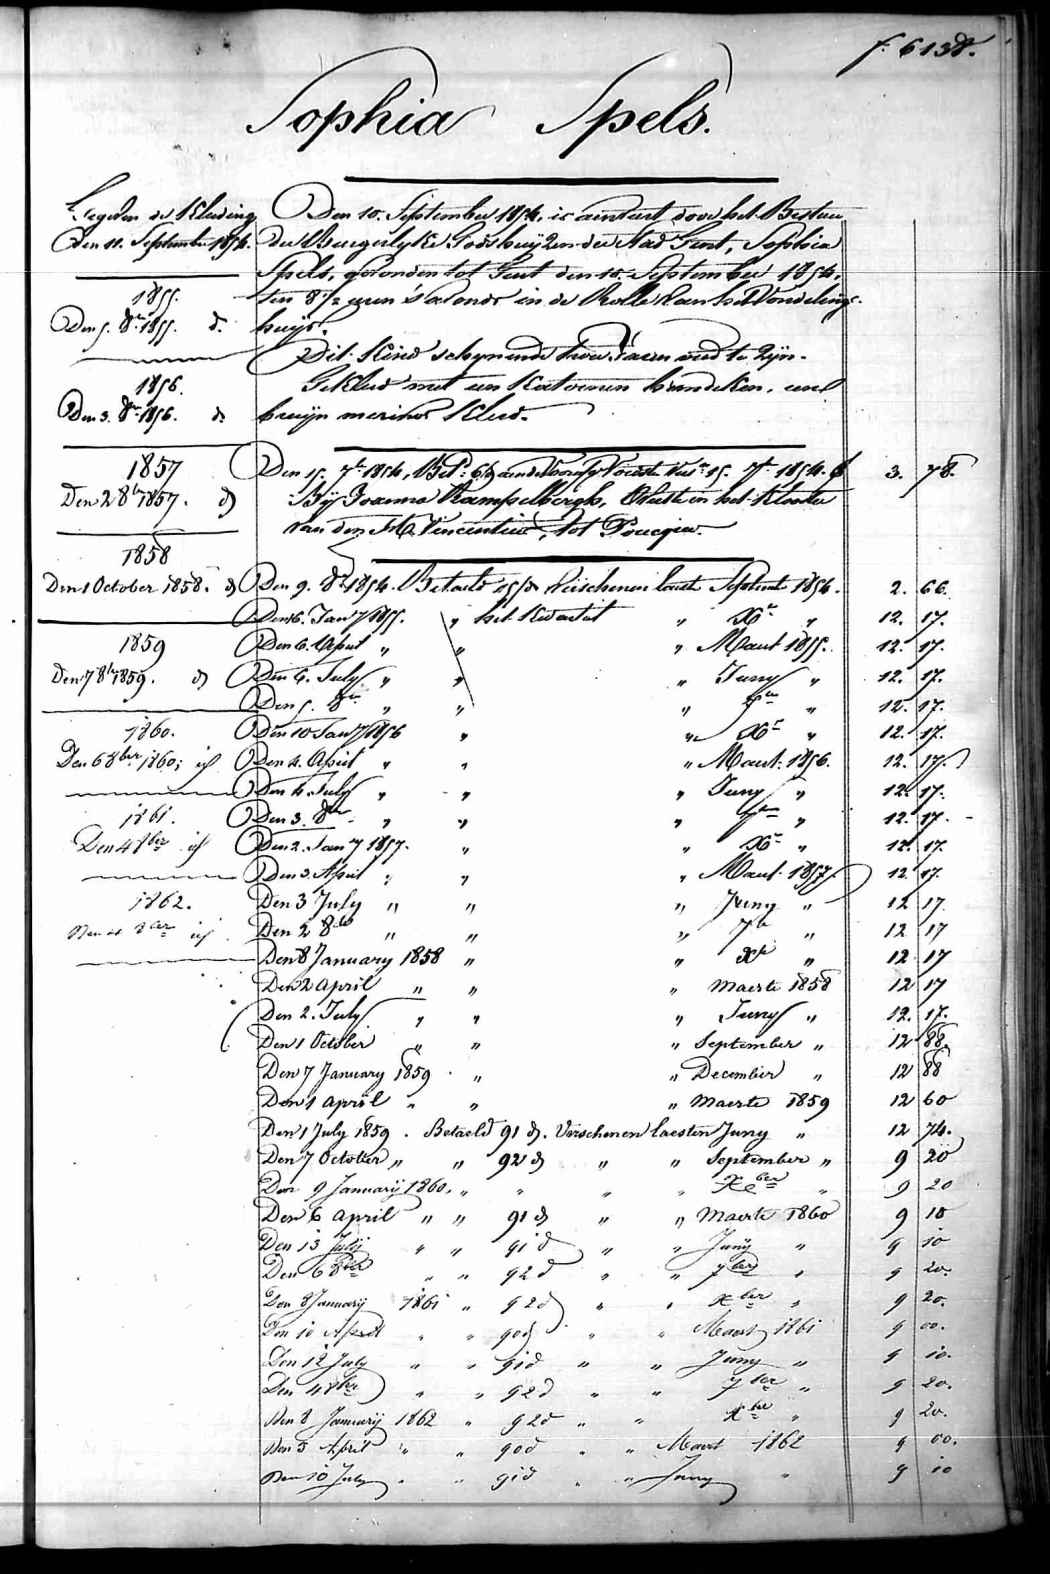 Sophia Spels.
Gegeven de Kleeding
Den 11. September 1854.
1855.
Den 5. 8er 1855. d.
1856.
Den 3. 8er 1856. d.
1857
Den 2 8br 1857. d
1858
Den 1 October 1858. d
1859
Den 7 8br 1859. d
1860.
Den 6 8ber 1860; id
1861.
Den 4 8ber id
1862.
Den 4 8ber id
Den 10. September 1854. is aenveert door het Bestuer
der Burgerlyke Godshuyzen der Stad Gent, Sophia
Spels, gevonden tot Gent den 10. September 1854.
ten 8 1/2 uren 's avonds in de Rolle van het Vondeling-
huys.
Dit Kind schynende twee daeren oud te zyn.
Gekleed met een Katoenen hemdeken, een
bruyn merinos Kleed.
Den 15. 7br 1854, 3. 78.
By Joanna Kampelbergh, in het Klooster
van den St Vincentius, tot Poucques.
Den 9. 8er 1854. Betaeld verschenen laeste September 1854. 2. 66.
Den 6. Jany 1855. " het Kwartael " Xer " 12. 17.
Den 6. April " " " Maert 1855. 12. 17.
Den 6. July " " " Juny " 12. 17.
Den 5. 8er " " " 7er " 12. 17.
Den 10 Jany 1856 " " Xer " 12. 17.
Den 4. April " " " Maert. 1856. 12. 17.
Den 4. July " " " Juny " 12. 17.
Den 3. 8er " " " 7er " 12. 17.
Den 2. Jany 1857. " " Xer " 12. 17.
Den 3. April " " " Maert 1857 12. 17.
Den 3 July " " " Juny " 12 17.
Den 2 8br " " " 7br " 12 17
Den 8 January 1858 " " Xbr " 12 17
Den 2 april " " " maerte 1858 12 17
Den 2. July " " " Juny " 12. 17.
Den 1 October " " " September " 12 88.
Den 7 January 1859 " " December " 12 88
Den 1 april " " " maerte 1859 12 60
Den 1 July 1859. Betaeld 91 d. Verschenen laesten Juny " 12 74.
Den 7 October " " 92 d " " September " 9 20
Den 9 Januarij 1860. " " " " Xber " 9 20
Den 6 april " " 91 d " " maerte 1860 9 10
Den 13 July " " 91 d " " Juny " 9 10
Den 6 8ber " " 92 d " " 7ber " 9 20.
Den 8 Januarij 1861 " 92 d " " Xber " 9 20.
Den 10 April " " 90 d " " Maert 1861 9 00.
Den 12 July " " 91 d " " Juny " 9 10.
Den 4 8ber " " 92 d " " 7ber " 9 20.
Den 8 Januarij 1862 " 92 d " " Xber " 9 20.
Den 5 April " " 90 d " " Maert 1862 9 00.
Den 10 July " " 91 d " " Juny " 9 10